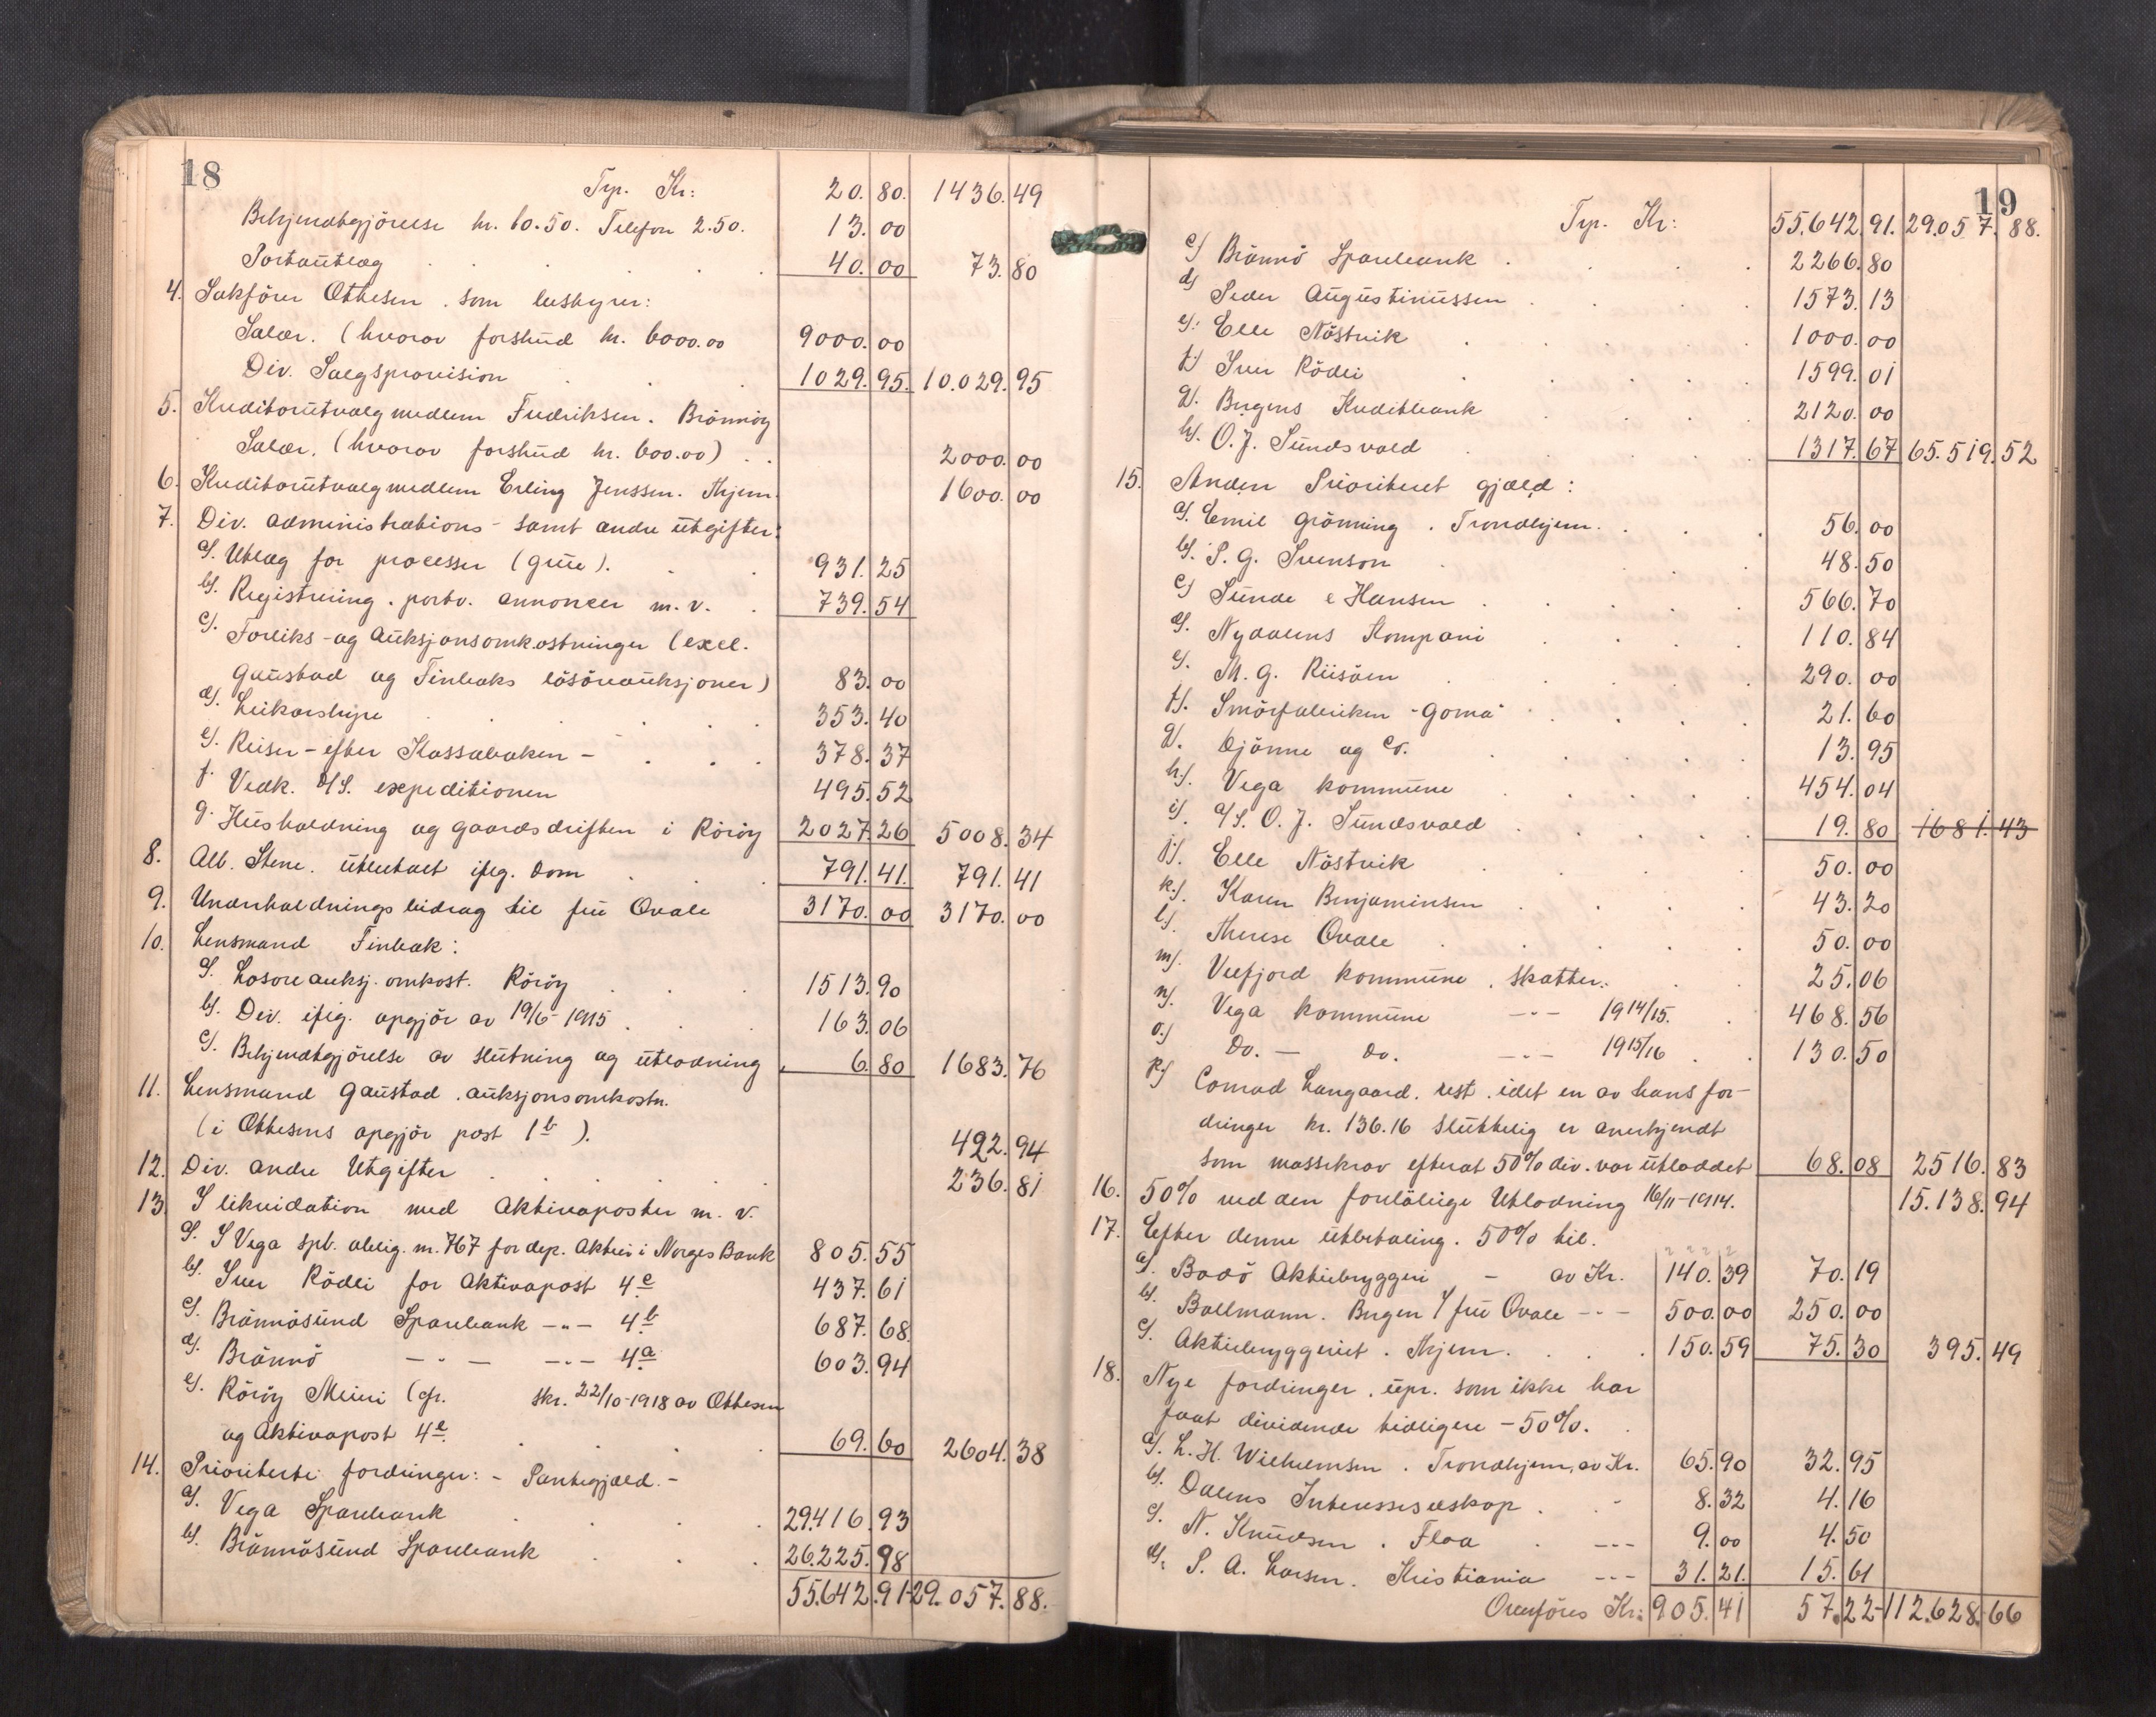 18
Trp. Kr: 20.80. 1436.49
Bekjendtgjörelse kr. 10.50. Telefon 2.50. 13.00
Portoutlæg 40.00 73.80
4. Sakförer Ottesen. som bestyrer:
Salær. (hvorav forskud kr. 6000.00 9000.00
Div. Salgsprovision 1029.95. 10.029.95
5. Kreditorutvalgmedlem Fredriksen. Brönnöy
Salær. (hvorav forskud kr. 600.00) 2000.00
6. Kreditorutvalgmedlem Erling Jenssen. Thjem. 1600.00
7. Div. administrations- samt andre utgifter:
a/. Utlæg for processer (grue). 931.25
b/. Registrering. porto. annoncer m.v. 739.54
c/. Forliks- og auksjonsomkostninger (excl.
Gaustad og Finbaks lösöreauksjoner) 83.00
d/. Leikarshyre 353.40
e/. Reiser - efter Kassaboken - 378.37
f. Vedk. D/S. expeditionen 495.52
g. Husholdning og gaardsdriften i Röröy 2027.26 5008.34
8. Alb. Stene. utbetalt iflg. dom 791.41. 791.41
9. Underholdningsbidrag til fru Ovale 3170.00 3170.00
10. Lensmand Finbak:
a/. Losoreauksj. omkost. Röröy 1513.90
b/. Div. iflg. opgjör av 19/6-1915. 163.06
c/. Bekjendtgjörelse av slutning og utlodning 6.80 1683.76
11. Lensmand Gaustad. auksjonsomkostn.
(i Ottesens opgjör post 1b). 492.94
12. Div. andre Utgifter 236.81
13. I likvidation med Aktivaposter m.v.
a/. I Vega spb. oblig. m. 767 for dep. Aktier i Norges Bank 805.55
b/. Iver Rödli for Aktivapost 4c 437.61
c/. Brönnösund Sparebank -"- 4b 687.68.
d/. Brönnö -"- -"- 4a 603.94
e/. Röröy Meieri (gr. skr. 22/10-1918 av Ottesen
og Aktivapost 4e. 69.60 2604.38
14. Prioriterte fordringer: - Pantegjæld. -
a/. Vega Sparebank 29.416.93
b/. Brönnösund Sparebank 26.225.98
55.642.91 29.057.88.
19
Trp. Kr: 55.642.91. 29.057.88.
c/ Brönnö Sparebank 2266.80
d/ Peder Augustinussen 1573.13
e/: Elle Nöstvik 1000.00
f/ Iver Rödli 1599.01
g/. Bergens Kreditbank 2120.00
h/. O.J. Sundsvold 1317.67 65.519.52
15. Anden Prioritert gjæld:
a/. Emil Grönning. Trondhjem. 56.00
b/. S.G. Svenson 48.50
c/ Sunde & Hansen 566.70
d/. Nydalens Kompani 110.84
e/. Th. G. Riisöen 290.00
f/. Smörfabriken "Goma" 21.60
g/. Djönne og Co. 13.95
h/. Vega kommune 454.04
i/. A/S. O.J. Sundsvold 19.80 1681.43
j/. Elle Nöstvik 50.00
k/. Karen Benjaminsen 43.20
l/. Therese Ovale 50.00
m/. Velfjord kommune. skatter. 25.06
n/. Vega kommune -"- 1914/15. 468.56
o/ Do. - do. -"- 1915/16 130.50
p/ Conrad Langaard. rest. idet en av hans for-
dringer kr. 136.16 sluttelig er anerkjendt
som massekrav efterat 50% div. var utloddet 68.08 2516.83
16. 50% ved den forelöbige Utlodning 16/11-1914. 15.138.94
17. Efter denne utbetaling. 50% til.
a/. Bodö Aktiebryggeri - av Kr. 140.39 70.19
b/. Ballmann. Bergen / fru Ovale -"- 500.00 250.00
c/. Aktiebryggeriet. Thjem. 150.59 75.30 395.49
18. Nye fordringer. upr. som ikke har
faat dividende tidligere - 50%.
a/. L.H. Wilhelmsen. Trondhjem, av Kr. 65.90 32.95
b/. Dalens Interesseselskap. " 8.32 4.16
c/. N. Knudsen. Floa -"- 9.00 4.50
d/. S.A. Larsen. Kristiania -"- 31.21. 15.61
Overföres Kr: 905.41 57.22 112.628.66